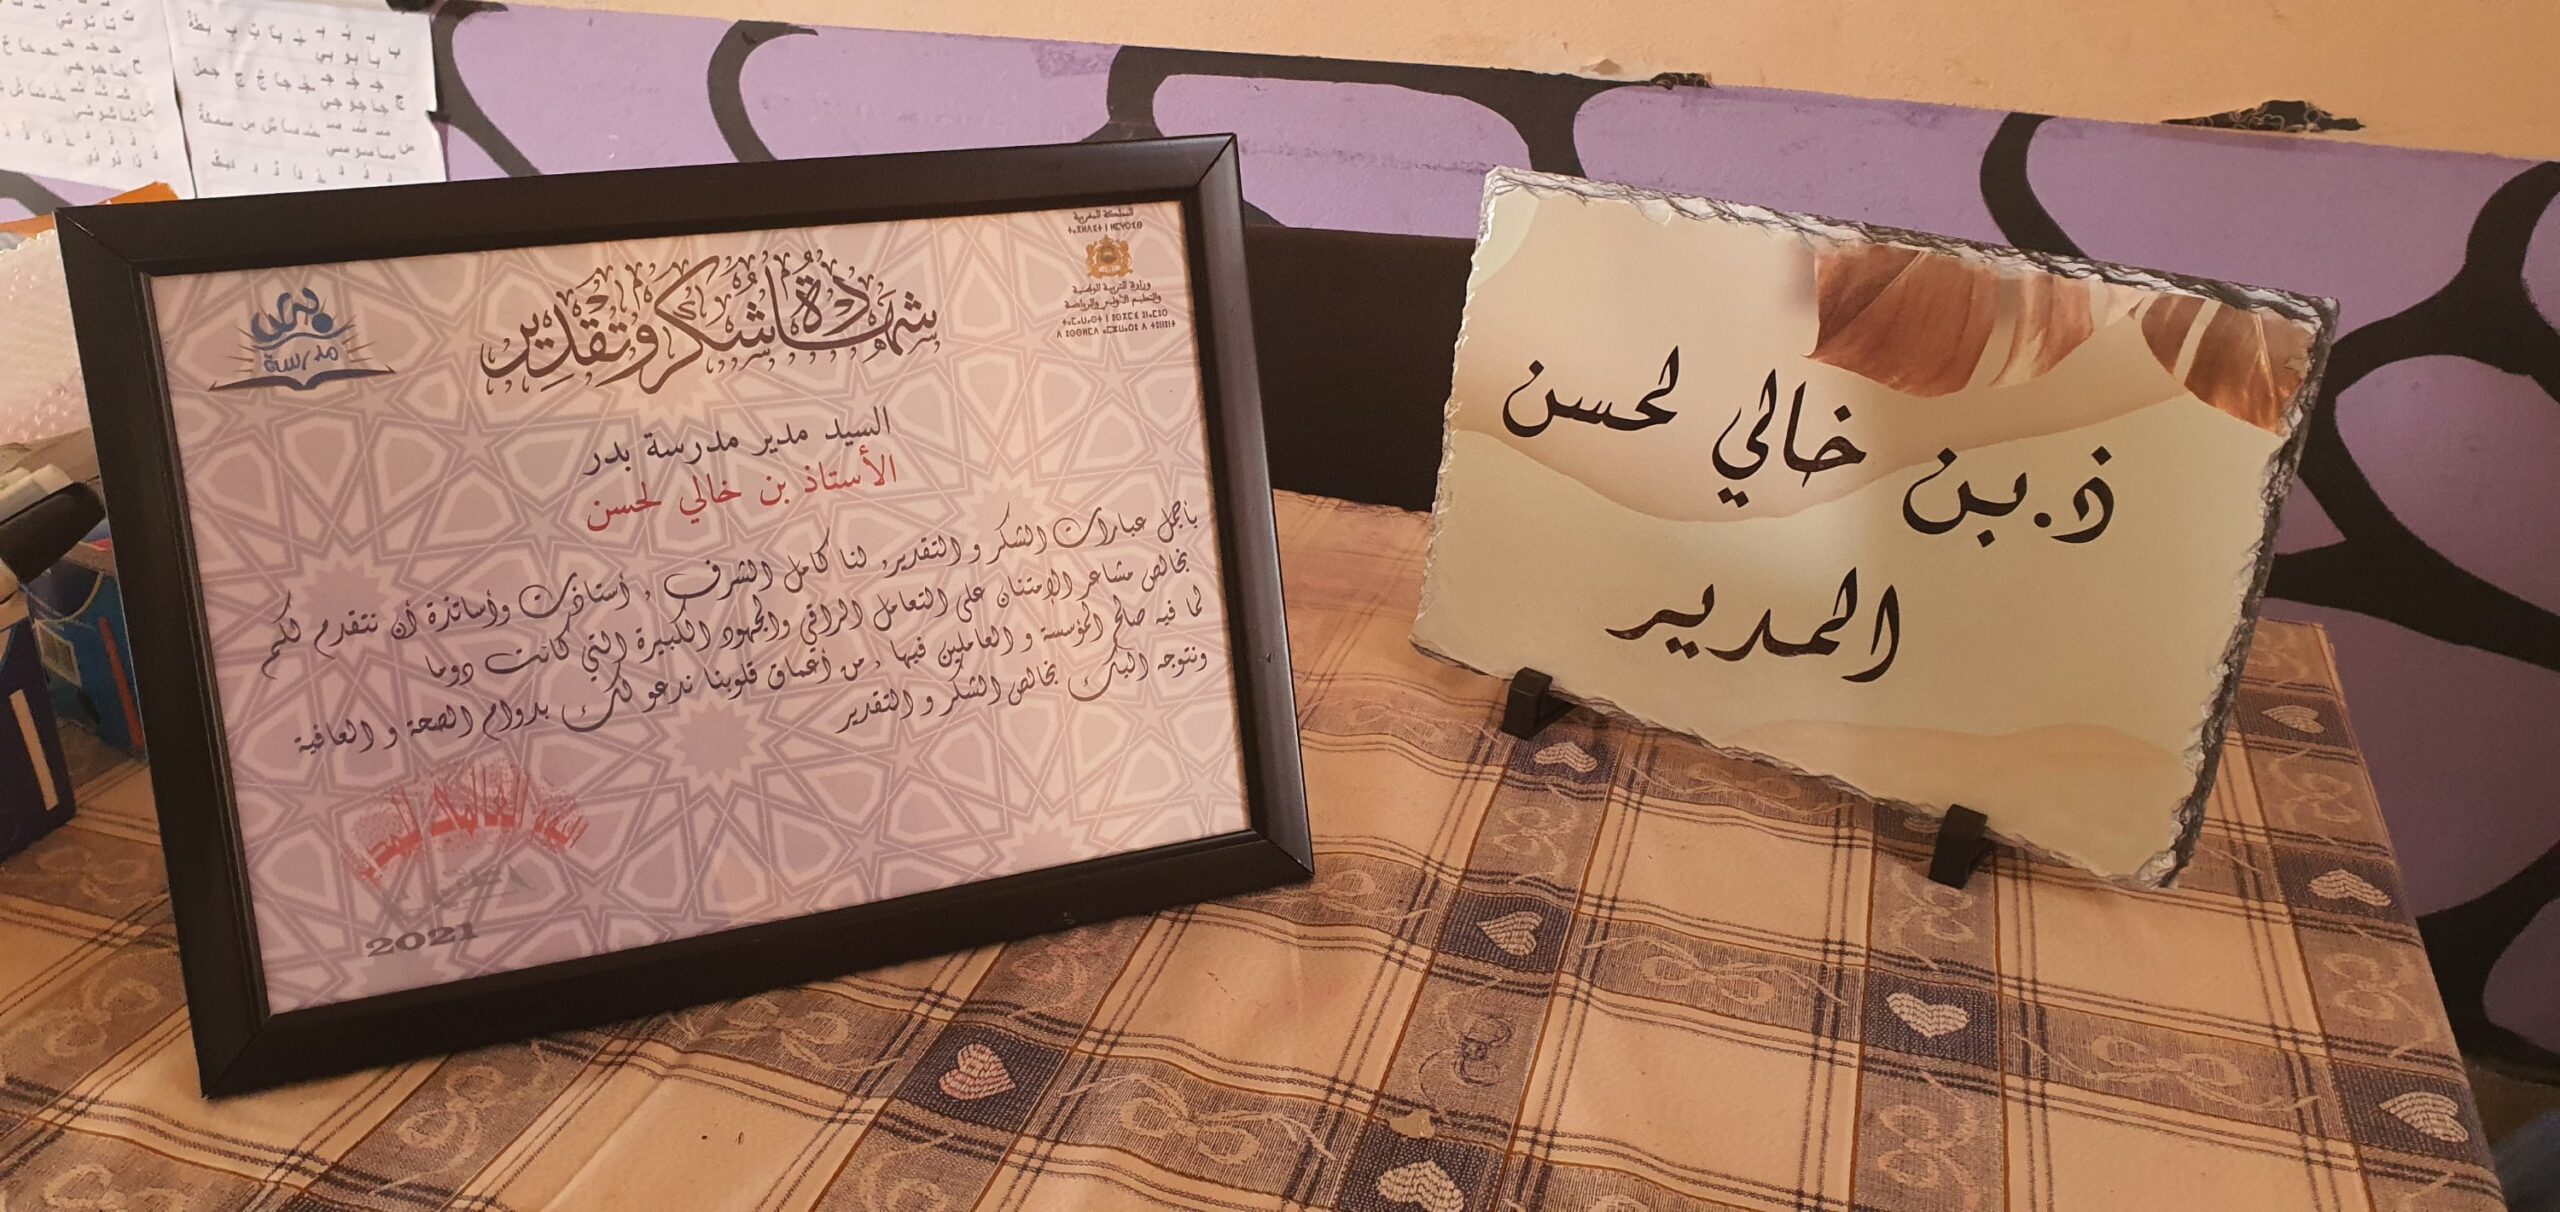 المملكة المغربية
ⵜⴰⴳⵍⴷⵉⵜ ⵏ ⵍⵎⵖⵔⵉⴱ
وزارة التربية الوطنية
والتعليم الأولي والرياضة
بدر
مدرسة
شهادة شكر وتقدير
السيد مدير مدرسة بدر
الأستاذ بن خالي لحسن
بأجمل عبارات الشكر و التقدير, لنا كامل الشرف , أستاذات وأساتذة أن نتقدم لكم
بخالص مشاعر الإمتنان على التعامل الراقي والجهود الكبيرة التي كانت دوما
لما فيه صالح المؤسسة و العاملين فيها , من أعماق قلوبنا ندعو لك بدوام الصحة و العافية
ونتوجه اليك بخالص الشكر و التقدير
اليوم العالمي للمدرس
2021
ذ. بن خالي لحسن
المدير
ب بطة
با بو بي
جا جو جي
سا سو سي